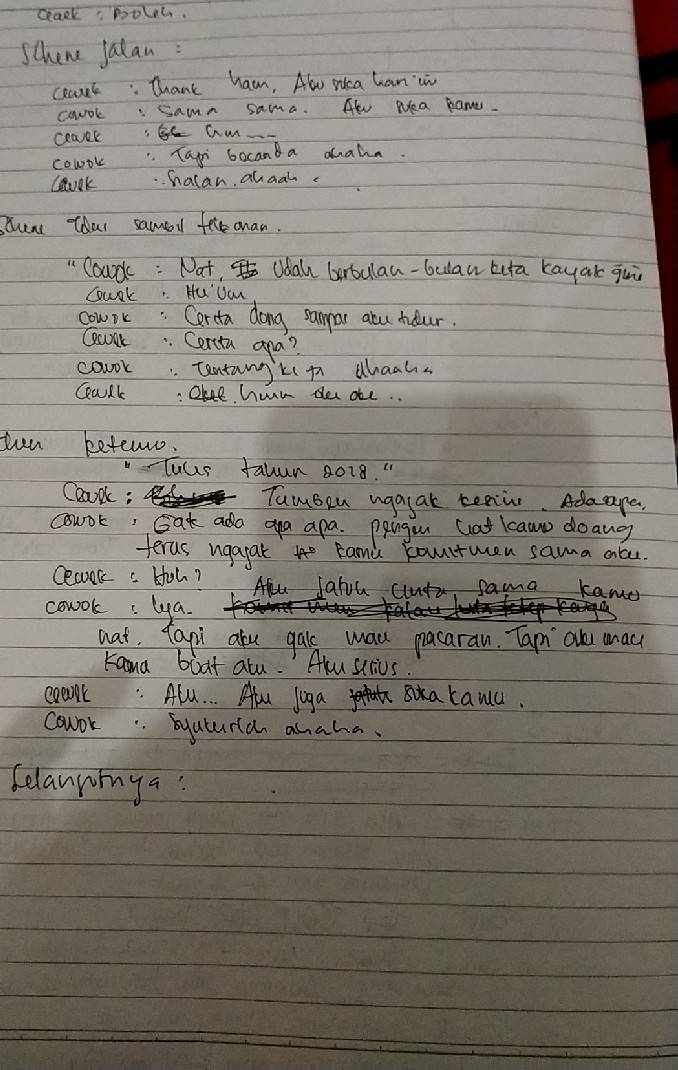 Cewek : Boleh.
Schene Jalan :
cewek : Thank ham, Aku suka hari ini
cowok : Sama sama. Aku suka kamu.
cewek : Hm...
cowok : Tapi bocanda ahaha.
Cewek : Sialan. ahaah.
Schene tidur sambil telponan.
"Cowok : Nat, Udah berbulan-bulan kita kayak gini
Cewek : Hu'um
cowok : Cerita dong sampai aku tidur.
Cewek : Cerita apa?
cowok : Tentang kita ahaaha
Cewek : Okee. hmm oke oke..
ketemu.
"Tulis tahun 2018."
Cewek : Tumben ngajak kesini. Ada apa.
Cowok : Gak ada apa apa. Pengen liat kamu doang
terus ngajak kamu komitmen sama aku.
Cewek : Huh?
cowok : Iya. Aku jatuh cinta sama kamu
nat. Tapi aku gak mau pacaran. Tapi aku mau
Kamu buat aku. Aku serius.
cewek : Aku... Aku juga suka kamu.
Cowok : Syukurlah ahaha.
Selanjutnya :